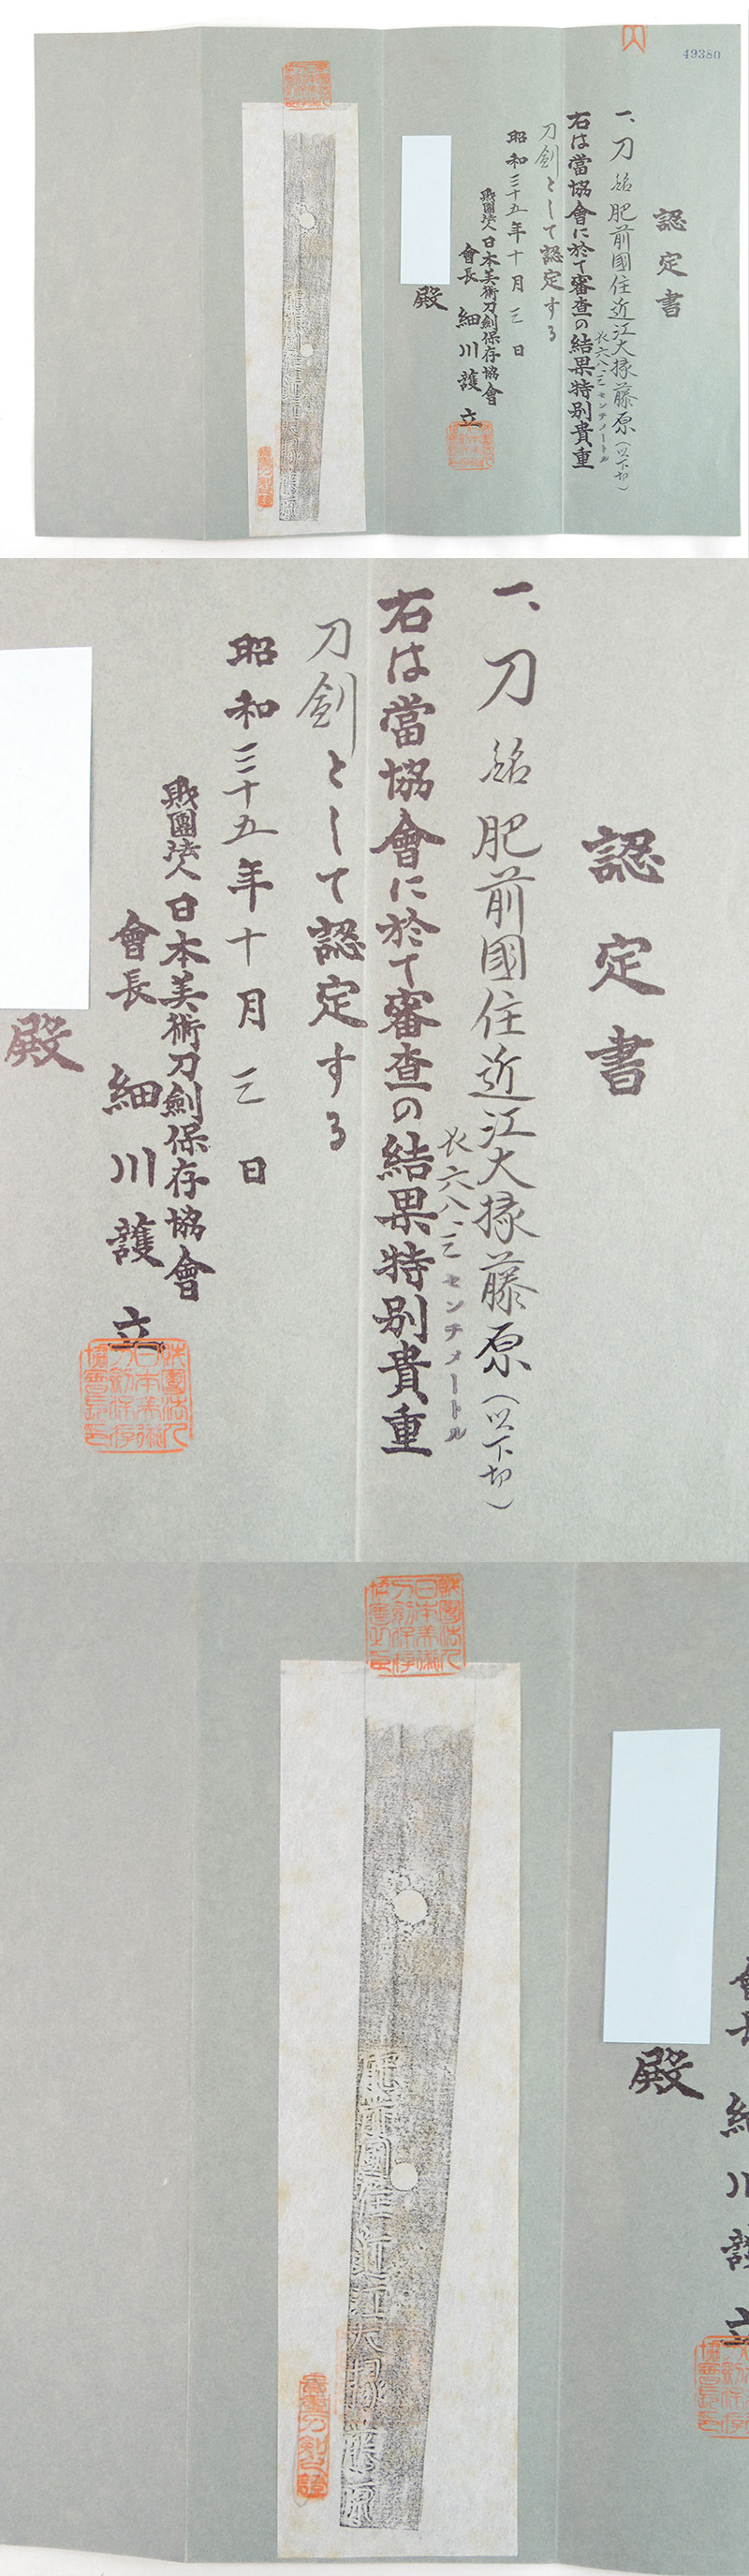 49380
認定書
一、刀 銘 肥前國住近江大掾藤原（以下切）
長 六八、三センチメートル
右は當協會に於て審査の結果特別貴重
刀劍として認定する
昭和三十五年十月三日
財團法人日本美術刀劍保存協會
會長 細川護立
殿
認定書
一、刀 銘 肥前國住近江大掾藤原（以下切）
長 六八、三センチメートル
右は當協會に於て審査の結果特別貴重
刀劍として認定する
昭和三十五年十月三日
財團法人日本美術刀劍保存協會
會長 細川護立
殿
肥前國住近江大掾藤原
殿